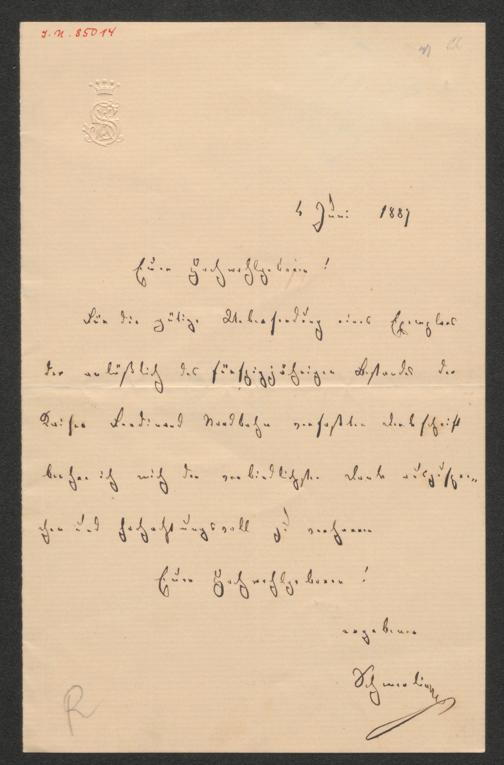 J. N. 85014
4 Juni 1887
Euer Hochwohlgeboren!
Für die gütige Uebersendung eines Exemplares
der anläßlich des fünfzigjährigen Bestandes der
Kaiser Ferdinand Nordbahn verfaßten Denkschrift
beehre ich mich den verbindlichsten Dank auszuspre-
chen und hochachtungsvoll zu verharren
Euer Hochwohlgeboren!
ergebener
Schmerling
R